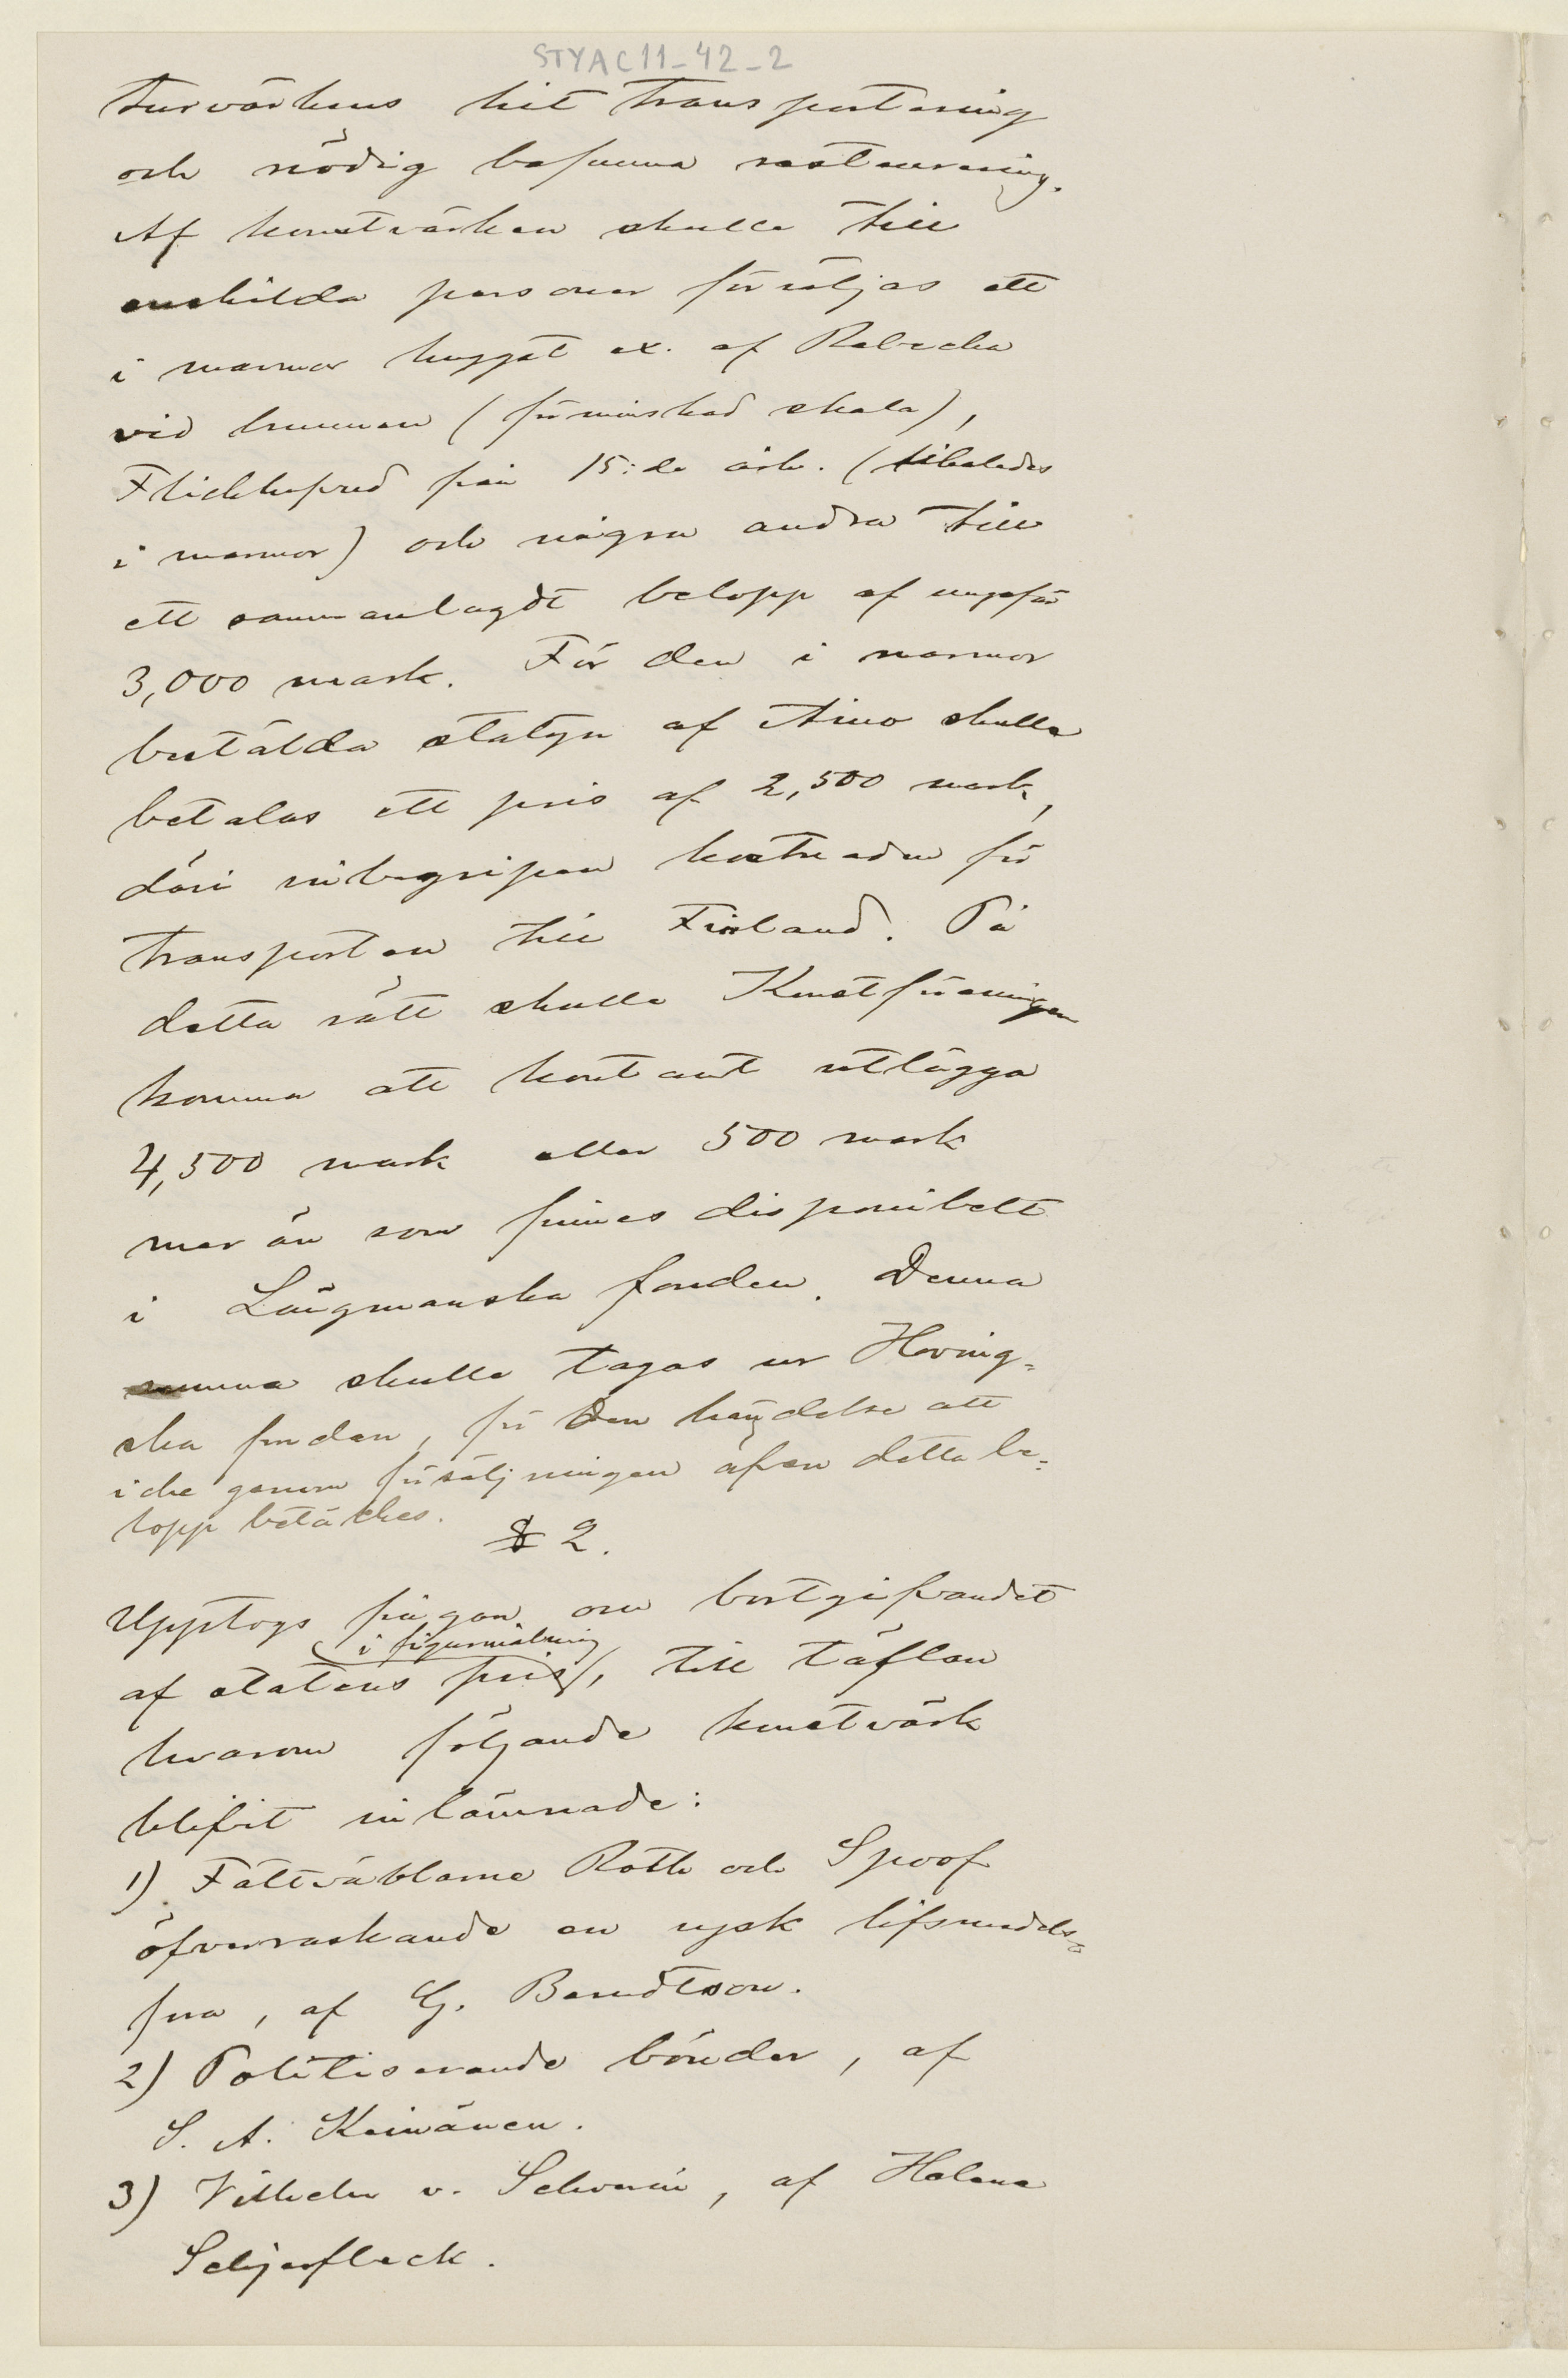 STYAC11_42_2
turvärkens hit transportering
och nödig befunna restaurering.
Af konstvärken skulle till
enskilda personer försäljas ett
i marmor hugget ex. af Rebecka
vid brunnen (förminskad skala),
Flickhufvud från 15:de årh. (likaledes
i marmor) och några andra till
ett sammanlagdt belopp af ungefär
3,000 mark. För den i marmor
bestälda statyn af Aino skulle
betalas ett pris af 2,500 mark,
däri inbegripen kostnaden för
transporten till Finland. På
detta sätt skulle Konstföreningen
komma att kontant utlägga
4,500 mark eller 500 mark
mer än som finnes disponibelt
i Längmanska fonden. Denna
summa skulle tagas ur Hoving-
ska fonden, för den händelse att
icke genom försäljningen äfven detta be-
lopp betäckes.
§ 2.
Upptogs frågan om bortgifvandet
i figurmålning
af statens pris, till täflan
hvarom följande konstvärk
blifvit inlämnade:
1) Fältväblarne Roth och Spoof
öfverraskande en rysk lifsmedels-
fora, af G. Berndtson.
2) Politiserande bönder, af
S. A. Keinänen.
3) Vilhelm v. Schwerin, af Helena
Schjerfbeck.